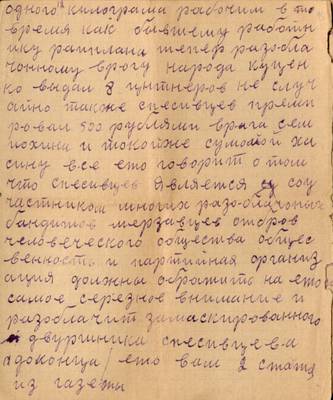 одного килограма рабочим в то
время как бывшему работн
ику рапплана тепер разобла
чонному врогу народа куцен
ко выдал 8 цнтнеров не случ
айно также спесивцев преми
ровал 500 рублями врага сем
похина и токойже сумотой хи
сину все ето говорит о том
что спесивцев является соу
частником многих разоблачоных
бандитов мерзавцев отбров
человеческого общества общес
твенность и партийная организ
ация должны обратить на ето
самое серезное внимание и
разоблачит замаскированного
двурушника спесивцева
доконца / ето вам 2 статя
из газеты